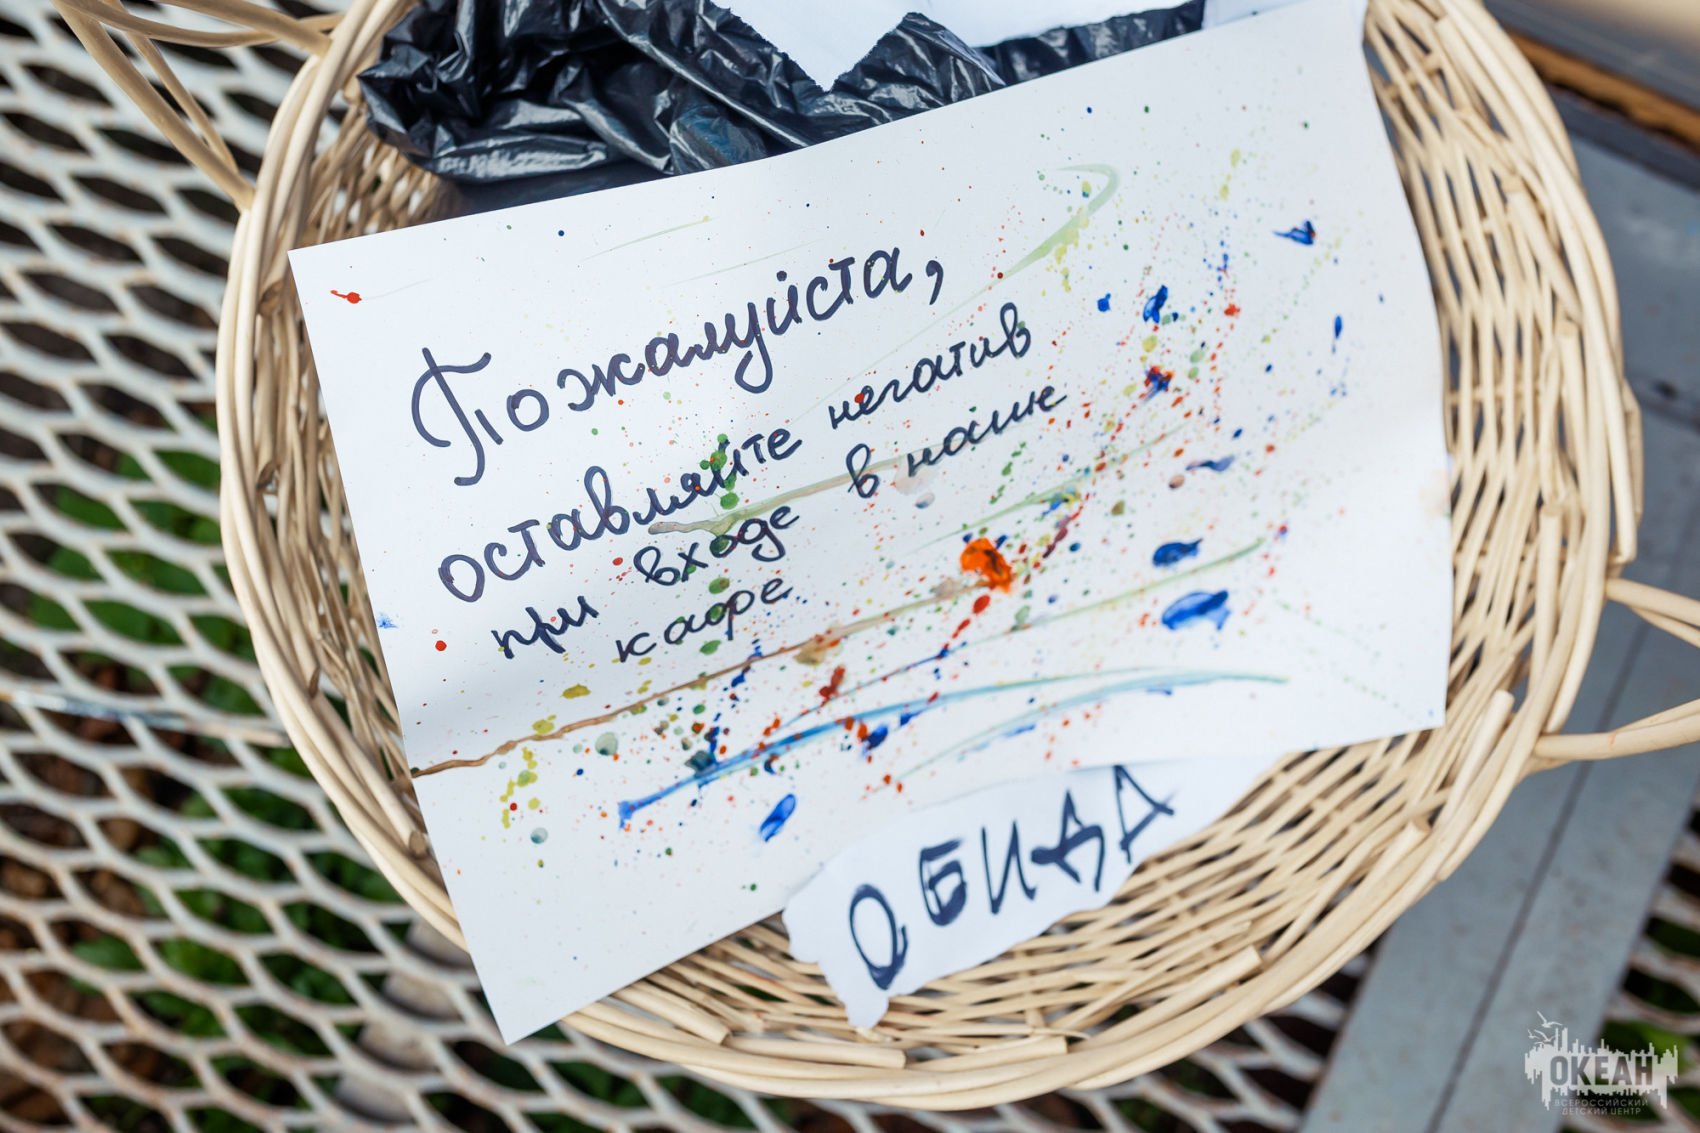 Пожалуйста,
оставляйте негатив
при входе в наше
кафе
ОБИДА
ОКЕАН
ВСЕРОССИЙСКИЙ
ДЕТСКИЙ ЦЕНТР